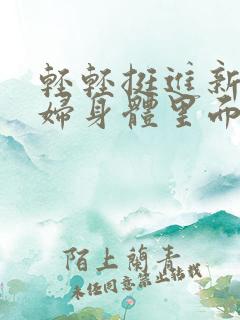 輕輕挺進新
婦身體里而
陌上蘭青
未任同意禁止转载